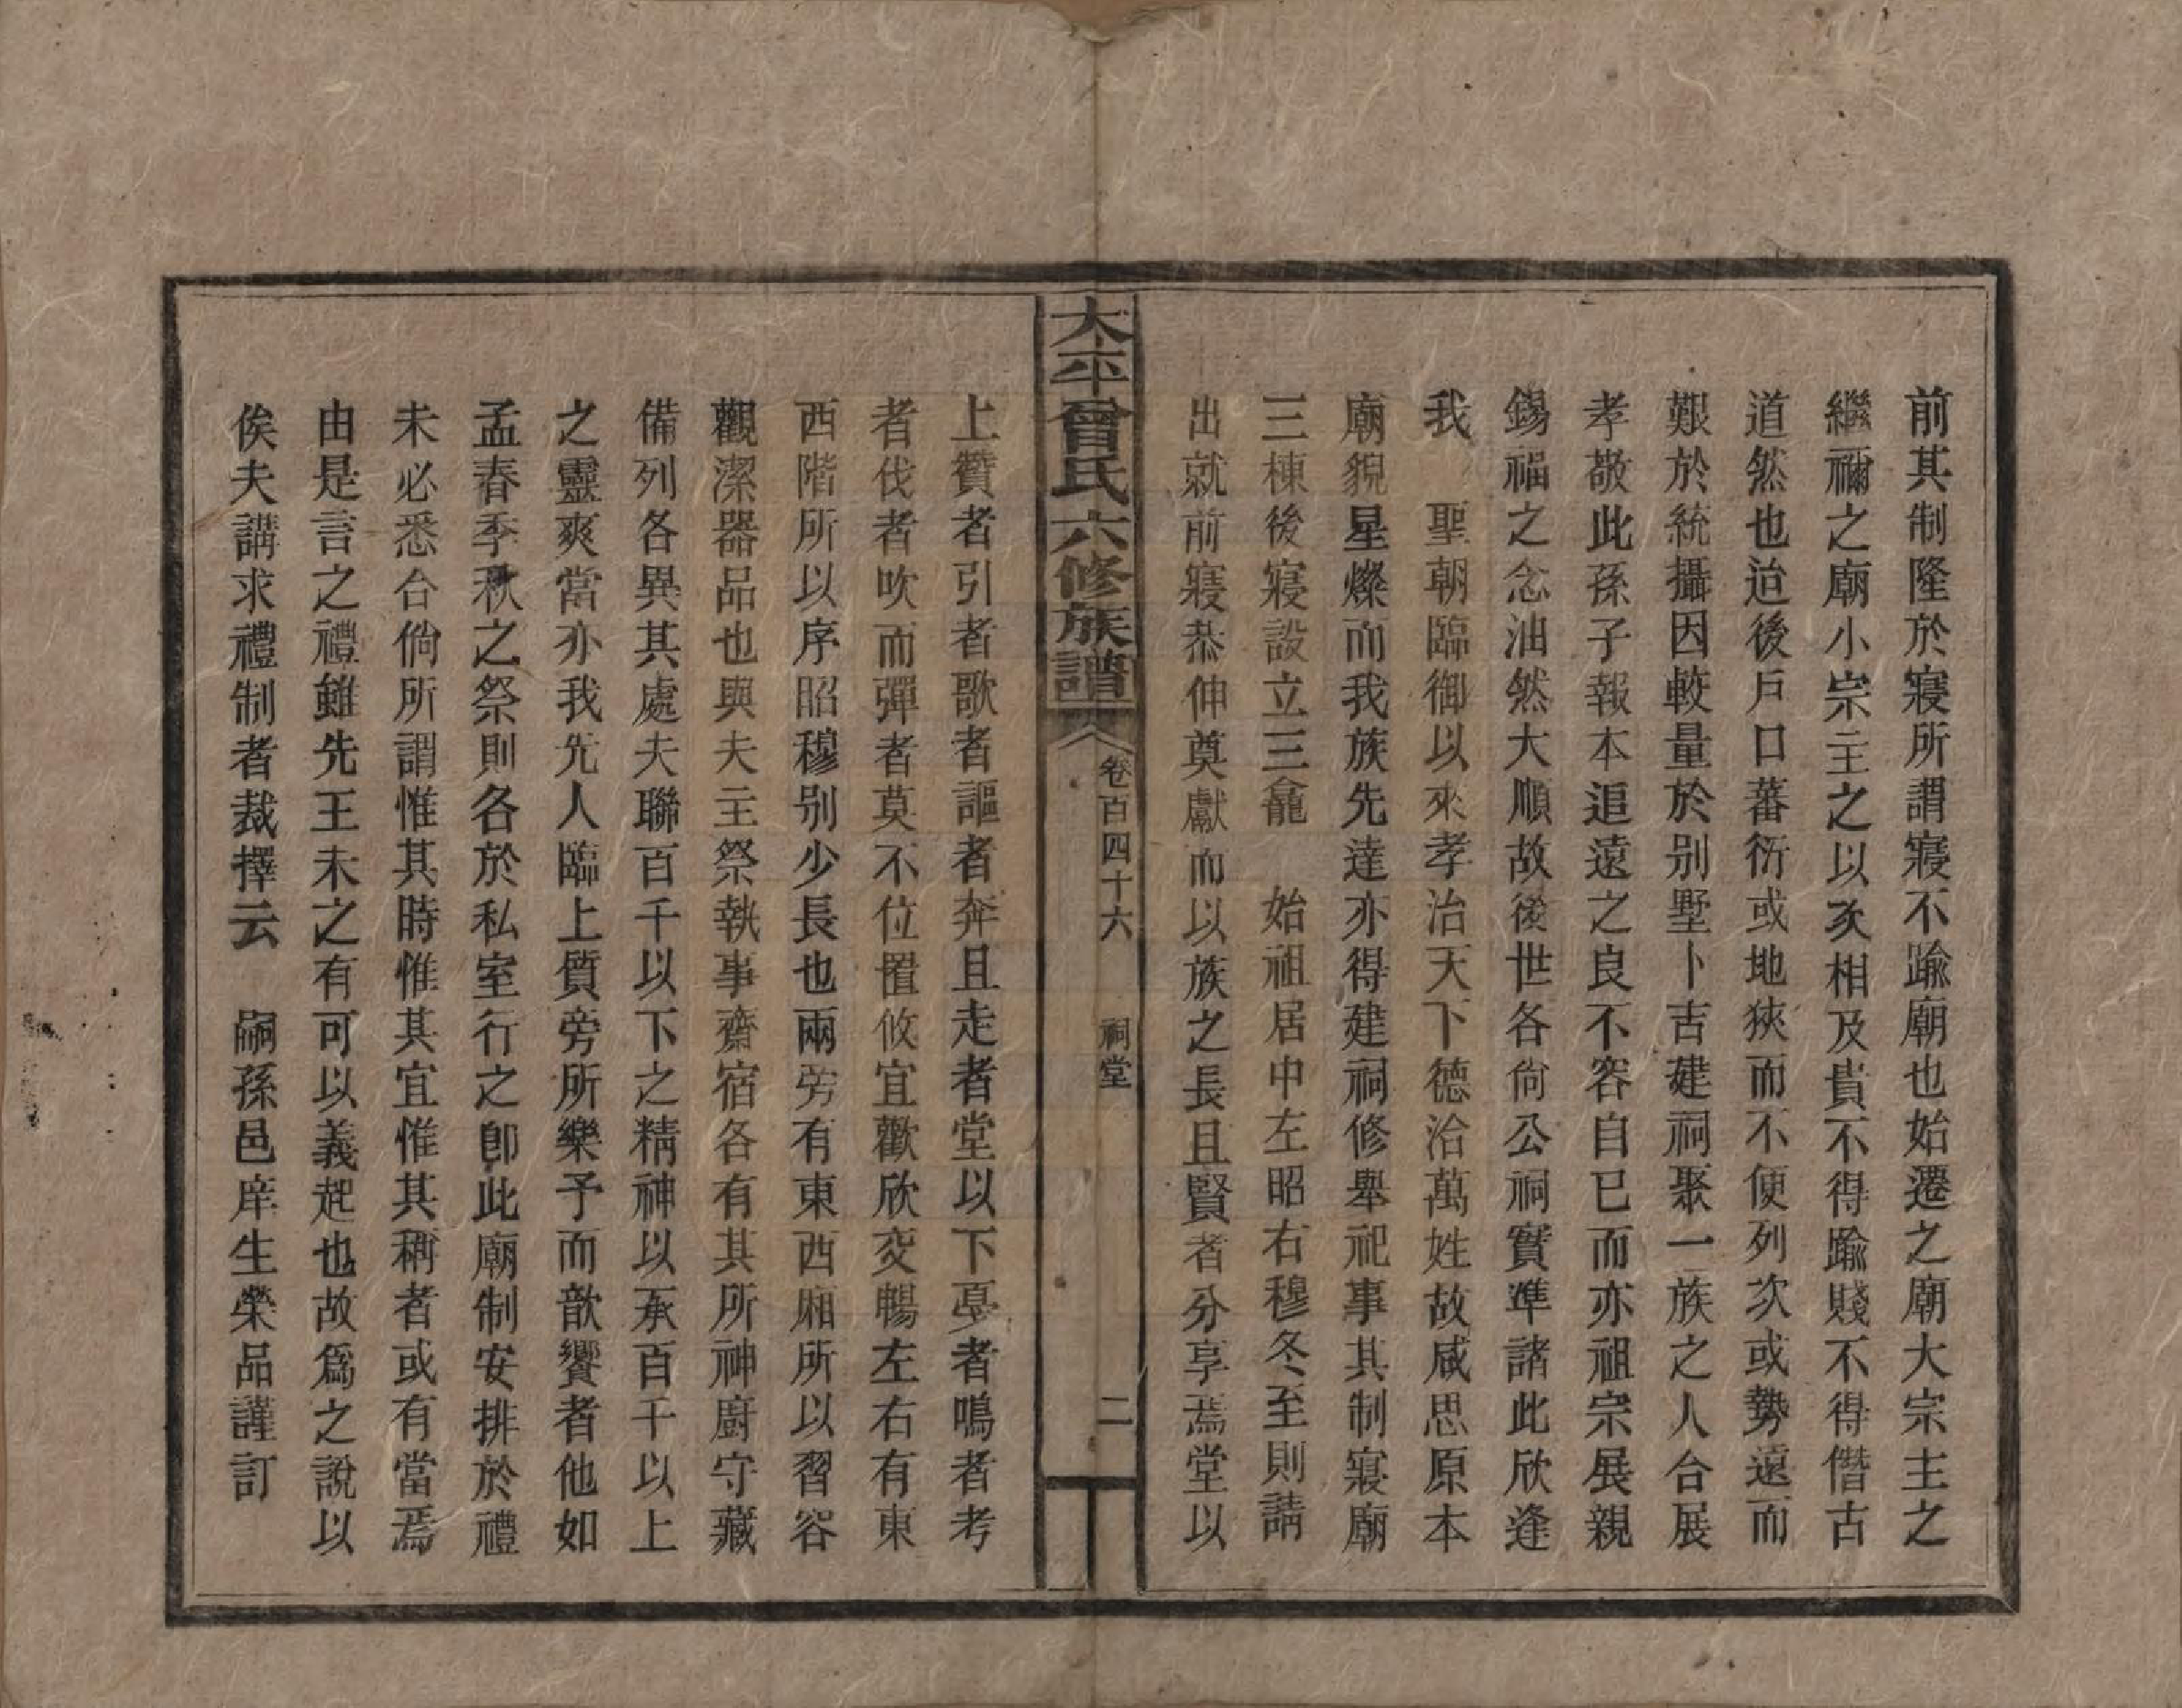 前其制隆於寢所謂寢不踰廟也始遷之廟大宗主之
繼禰之廟小宗主之以次相及貴不得踰賤不得僭古
道然也迨後戶口蕃衍或地狹而不便列次或勢遠而
艱於統攝因較量於别墅卜吉建祠聚一族之人合展
孝敬此孫子報本追遠之良不容自已而亦祖宗展親
錫福之念油然大順故後世各尙公祠實準諸此欣逢
我　聖朝臨御以來孝治天下德洽萬姓故咸思原本
廟貌星燦而我族先達亦得建祠修舉祀事其制寢廟
三棟後寢設立三龕　始祖居中左昭右穆冬至則請
出就前寢恭伸奠獻而以族之長且賢者分享焉堂以
太平曾氏六修族譜
卷百四十六　祠堂　二
上贊者引者歌者謳者奔且走者堂以下戛者鳴者考
者伐者吹而彈者莫不位置攸宜歡欣交暢左右有東
西階所以序昭穆别少長也兩旁有東西廂所以習容
觀潔器品也與夫主祭執事齋宿各有其所神廚守藏
備列各異其處夫聯百千以下之精神以承百千以上
之靈爽當亦我先人臨上質旁所樂予而歆饗者他如
孟春季秋之祭則各於私室行之卽此廟制安排於禮
未必悉合倘所謂惟其時惟其宜惟其稱者或有當焉
由是言之禮雖先王未之有可以義起也故爲之說以
俟夫講求禮制者裁擇云　嗣孫邑庠生榮品謹訂